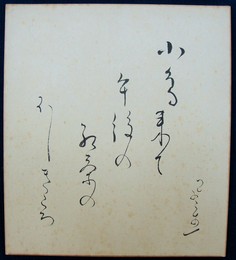 小鳥来て
午後の
紅茶の
ほしきころ